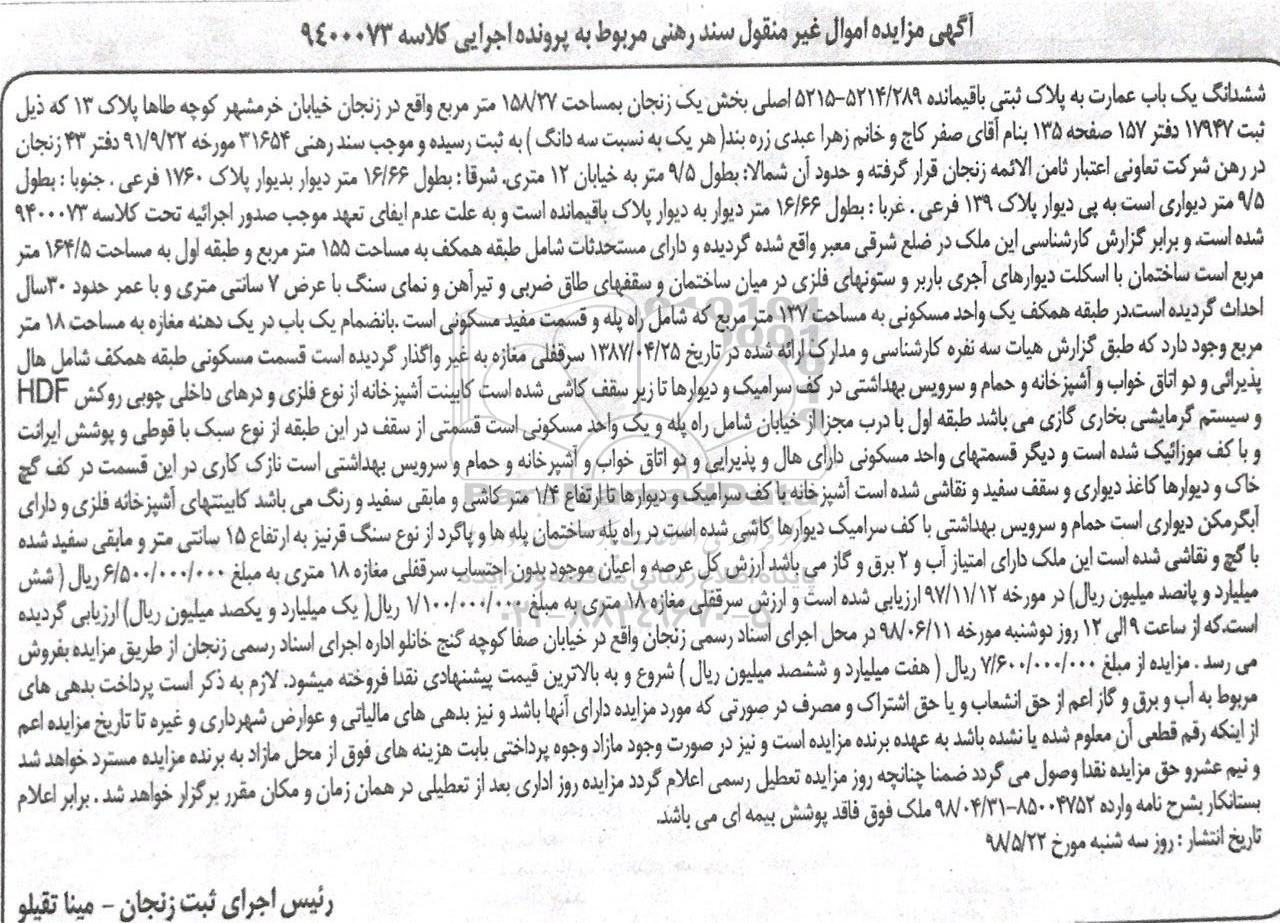 آگهی مزایده اموال غیر منقول سند رهنی مربوط به پرونده اجرایی کلاسه ۹۴۰۰۰۷۳
ششدانگ یک باب عمارت به پلاک ثبتی باقیمانده ۵۲۱۴/۲۸۹-۵۲۱۵ اصلی بخش یک زنجان بمساحت ۱۵۸/۲۷ متر مربع واقع در زنجان خیابان خرمشهر کوچه طاها پلاک ۱۳ که ذیل
ثبت ۱۷۹۴۷ دفتر ۱۵۷ صفحه ۱۳۵ بنام آقای صفر کاج و خانم زهرا عبدی زره بند( هر یک به نسبت سه دانگ ) به ثبت رسیده و موجب سند رهنی ۳۱۶۵۴ مورخه ۹۱/۹/۲۲ دفتر ۴۳ زنجان
در رهن شرکت تعاونی اعتبار ثامن الائمه زنجان قرار گرفته و حدود آن شمالا: بطول ۹/۵ متر به خیابان ۱۲ متری. شرقا : بطول ۱۶/۶۶ متر دیوار بدیوار پلاک ۱۷۶۰ فرعی . جنوبا : بطول
۹/۵ متر دیواری است به پی دیوار پلاک ۱۳۹ فرعی . غربا : بطول ۱۶/۶۶ متر دیوار به دیوار پلاک باقیمانده است و به علت عدم ایفای تعهد موجب صدور اجرائیه تحت کلاسه ۹۴۰۰۰۷۳
شده است. و برابر گزارش کارشناسی این ملک در ضلع شرقی معبر واقع شده گردیده و دارای مستحدثات شامل طبقه همکف به مساحت ۱۵۵ متر مربع و طبقه اول به مساحت ۱۶۴/۵ متر
مربع است ساختمان با اسکلت دیوارهای آجری باربر و ستونهای فلزی در میان ساختمان و سقفهای طاق ضربی و تیرآهن و نمای سنگ با عرض ۷ سانتی متری و با عمر حدود ۳۰سال
احداث گردیده است.در طبقه همکف یک واحد مسکونی به مساحت ۱۳۷ متر مربع که شامل راه پله و قسمت مفید مسکونی است .بانضمام یک باب در یک دهنه مغازه به مساحت ۱۸ متر
مربع وجود دارد که طبق گزارش هیات سه نفره کارشناسی و مدارک ارائه شده در تاریخ ۱۳۸۷/۰۴/۲۵ سرقفلی مغازه به غیر واگذار گردیده است قسمت مسکونی طبقه همکف شامل هال
پذیرائی و دو اتاق خواب و آشپزخانه و حمام و سرویس بهداشتی در کف سرامیک و دیوارها تا زیر سقف کاشی شده است کابینت آشپزخانه از نوع فلزی و درهای داخلی چوبی روکش HDF
و سیستم گرمایشی بخاری گازی می باشد طبقه اول با درب مجزا از خیابان شامل راه پله و یک واحد مسکونی است قسمتی از سقف در این طبقه از نوع سبک با قوطی و پوشش ایرانت
و با کف موزائیک شده است و دیگر قسمتهای واحد مسکونی دارای هال و پذیرایی و دو اتاق خواب و آشپرخانه و حمام و سرویس بهداشتی است نازک کاری در این قسمت در کف گچ
خاک و دیوارها کاغذ دیواری و سقف سفید و نقاشی شده است آشپزخانه با کف سرامیک و دیوارها تا ارتفاع ۱/۴ متر کاشی و مابقی سفید و رنگ می باشد کابینتهای آشپزخانه فلزی و دارای
آبگرمکن دیواری است حمام و سرویس بهداشتی با کف سرامیک دیوارها کاشی شده است در راه پله ساختمان پله ها و پاگرد از نوع سنگ قرنیز به ارتفاع ۱۵ سانتی متر و مابقی سفید شده
با گچ و نقاشی شده است این ملک دارای امتیاز آب و ۲ برق و گاز می باشد ارزش کل عرصه و اعیان موجود بدون احتساب سرقفلی مغازه ۱۸ متری به مبلغ ۶/۵۰۰/۰۰۰/۰۰۰ ریال ( شش
میلیارد و پانصد میلیون ریال) در مورخه ۹۷/۱۱/۱۲ ارزیابی شده است و ارزش سرقفلی مغازه ۱۸ متری به مبلغ ۱/۱۰۰/۰۰۰/۰۰۰ ریال( یک میلیارد و یکصد میلیون ریال) ارزیابی گردیده
است.که از ساعت ۹ الی ۱۲ روز دوشنبه مورخه ۹۸/۰۶/۱۱ در محل اجرای اسناد رسمی زنجان واقع در خیابان صفا کوچه گنج خانلو اداره اجرای اسناد رسمی زنجان از طریق مزایده بفروش
می رسد . مزایده از مبلغ ۷/۶۰۰/۰۰۰/۰۰۰ ریال ( هفت میلیارد و ششصد میلیون ریال ) شروع و به بالاترین قیمت پیشنهادی نقدا فروخته میشود. لازم به ذکر است پرداخت بدهی های
مربوط به آب و برق و گاز اعم از حق انشعاب و یا حق اشتراک و مصرف در صورتی که مورد مزایده دارای آنها باشد و نیز بدهی های مالیاتی و عوارض شهرداری و غیره تا تاریخ مزایده اعم
از اینکه رقم قطعی آن معلوم شده یا نشده باشد به عهده برنده مزایده است و نیز در صورت وجود مازاد وجوه پرداختی بابت هزینه های فوق از محل مازاد به برنده مزایده مسترد خواهد شد
و نیم عشرو حق مزایده نقدا وصول می گردد ضمنا چنانچه روز مزایده تعطیل رسمی اعلام گردد مزایده روز اداری بعد از تعطیلی در همان زمان و مکان مقرر برگزار خواهد شد . برابر اعلام
بستانکار بشرح نامه وارده ۸۵۰۰۴۷۵۲-۹۸/۰۴/۳۱ ملک فوق فاقد پوشش بیمه ای می باشد.
تاریخ انتشار : روز سه شنبه مورخ ۹۸/۵/۲۲
رئیس اجرای ثبت زنجان - مینا تقیلو